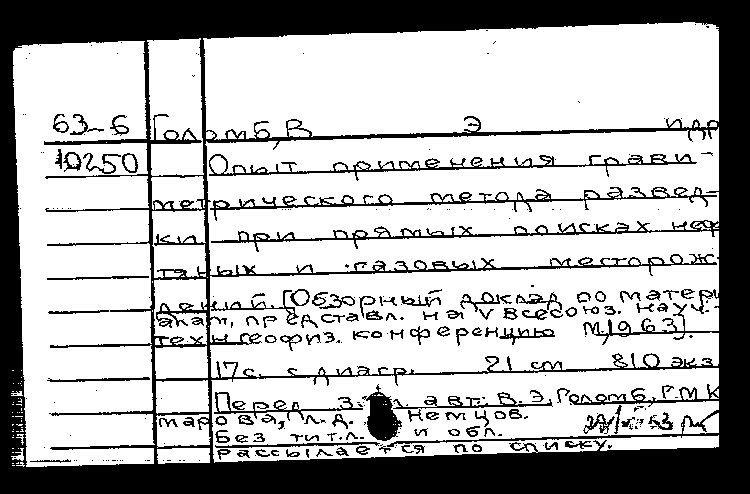 63-6 Голомб, В Э и др
10250 Опыт применения грави-
метрического метода развед-
ки при прямых поисках неф
тяных и газовых месторож-
дений. [Обзорный доклад по матери
алам, представл. на V Всесоюз. науч.-
техн геофиз. конференцию М, 1963].
17с. с диагр. 21 см 810 экз
Перед авт: В. Э. Голомб, Г. М К
марова, Л. Д. Немцов.
Без тит. л. и обл.
Рассылается по списку.